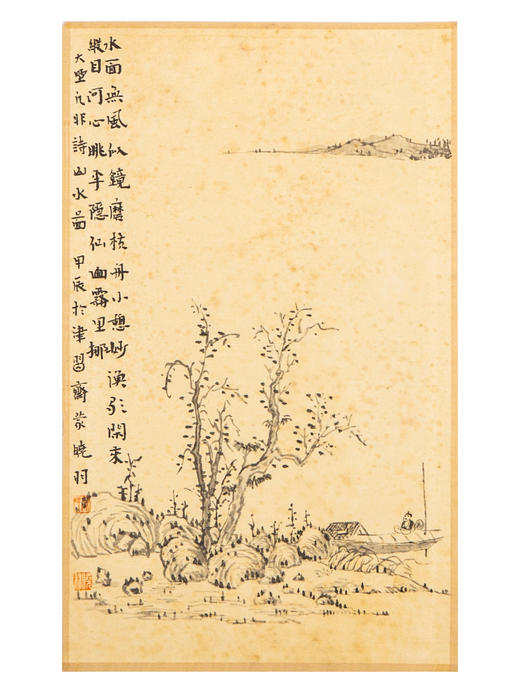 水面無風似鏡磨舟小憩妙漁閑來
縱目河心眺半隱仙山霧里挪
大墅凡非詩山水圖甲辰於津習齋蒙曉羽